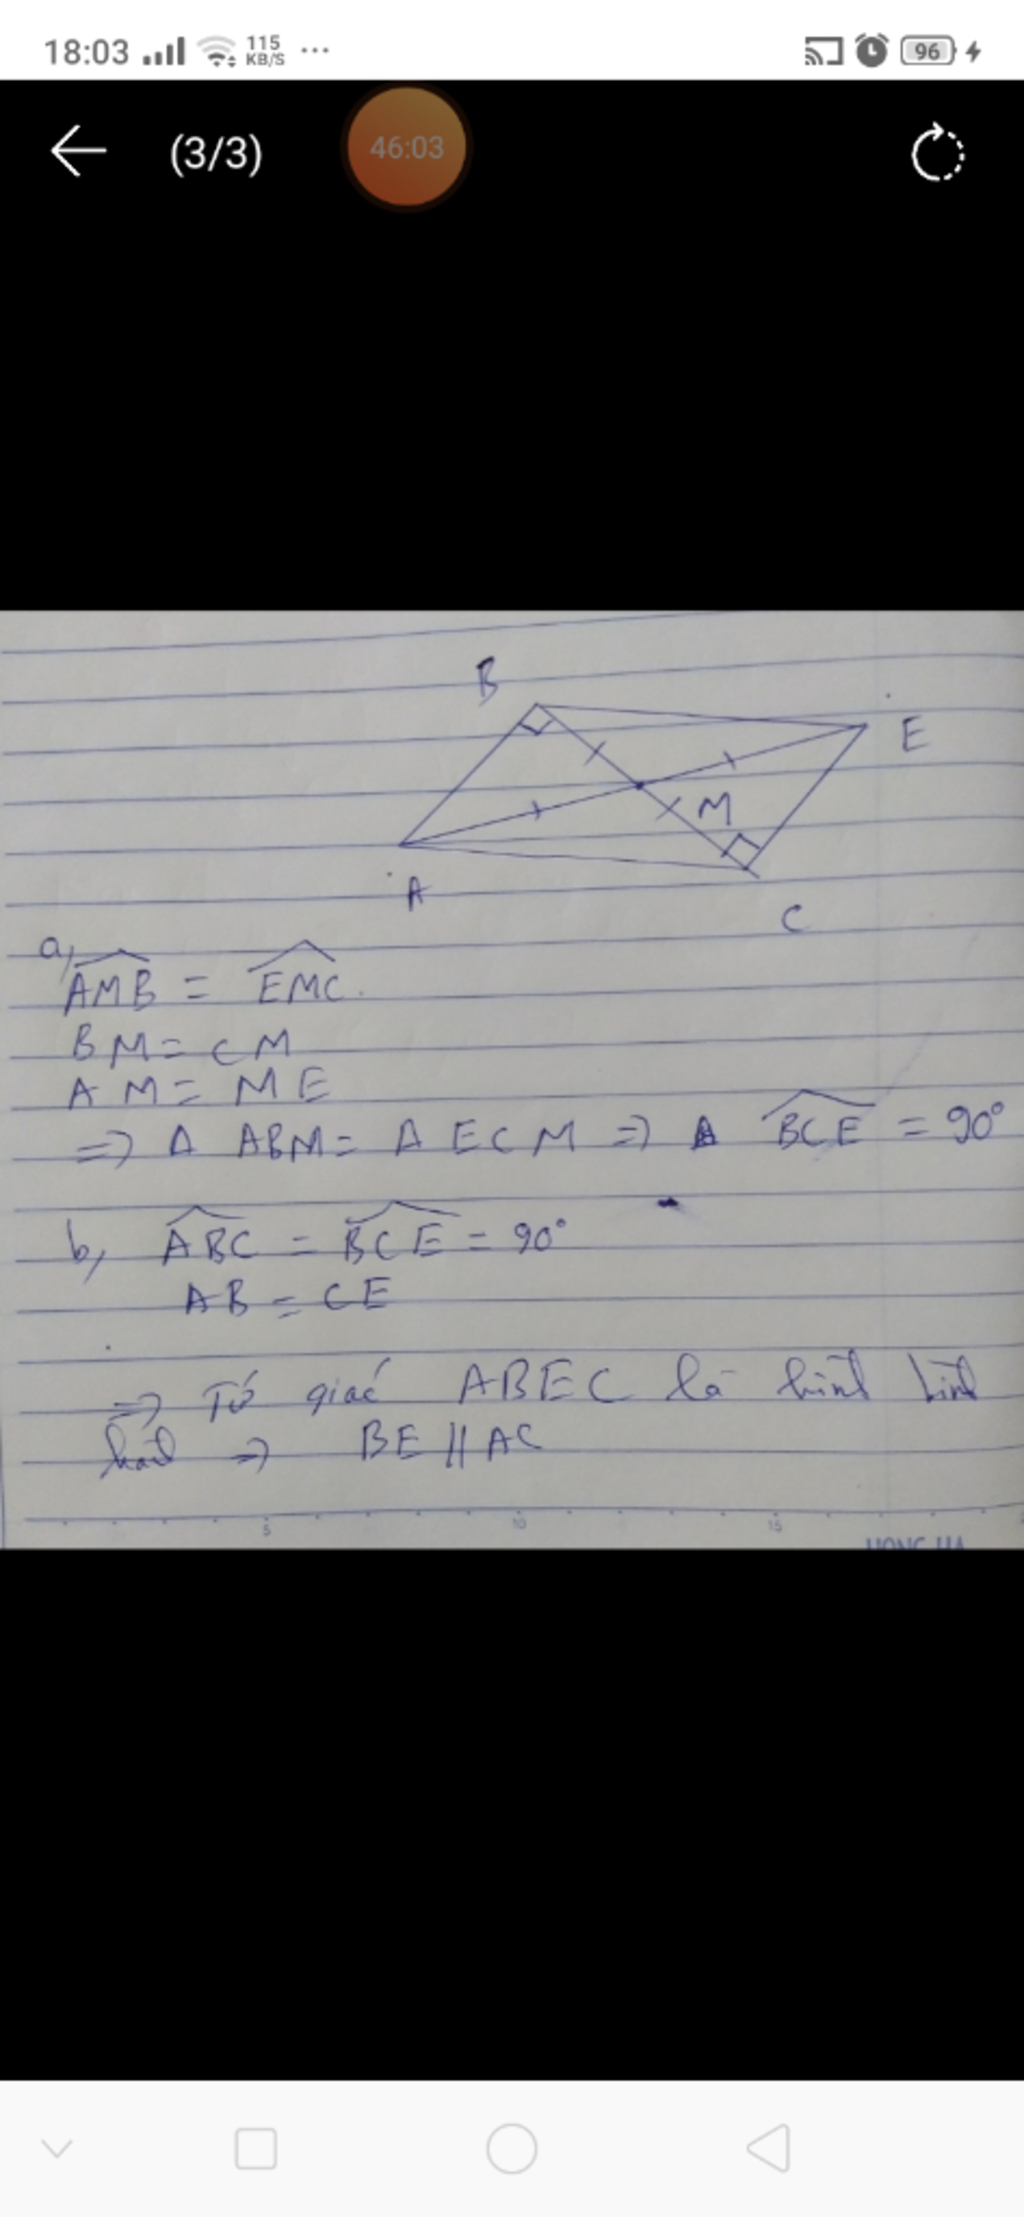 18:03 115 KB/S ... 96
(3/3) 46:03
B
E
M
A
C
a,
AMB = EMC.
BM = CM
AM = ME
=> Δ ABM = Δ ECM => BCE = 90°
b, ABC = BCE = 90°
AB = CE
=> Tứ giác ABEC là hình bình
hành => BE // AC
5 10 15
HONG HA